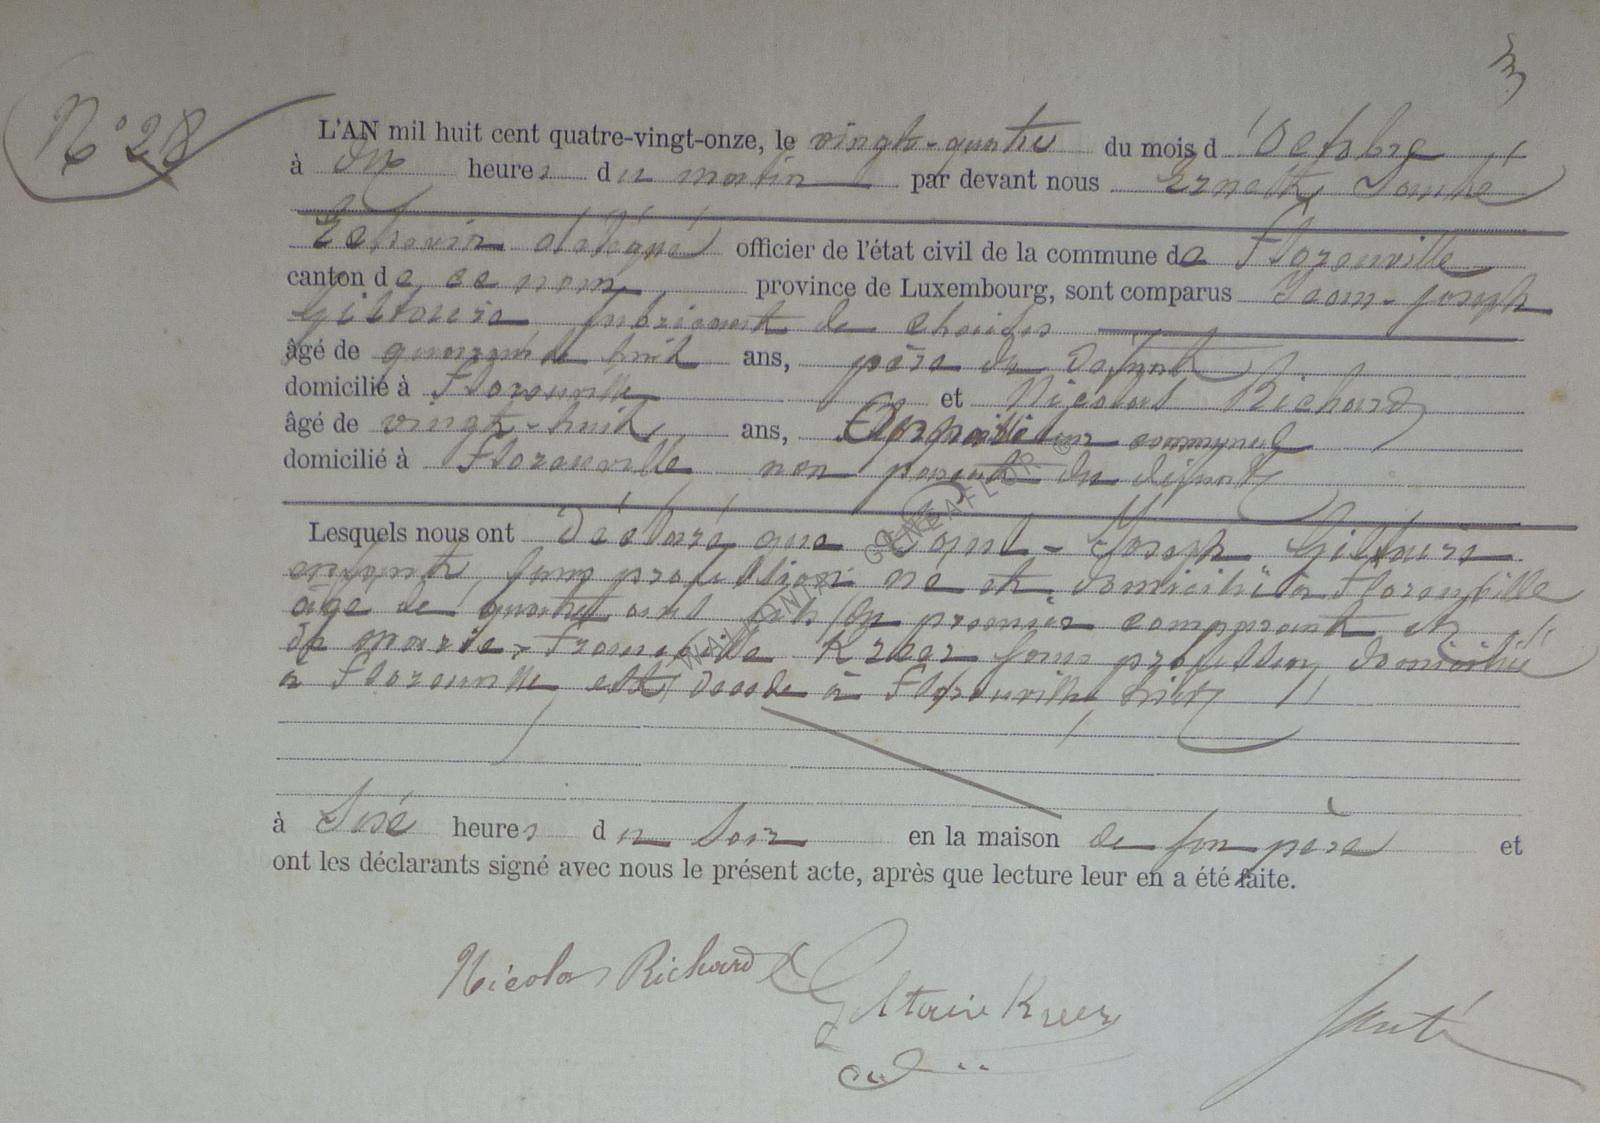 N° 28
L'AN mil huit cent quatre-vingt-onze, le vingt-quatre du mois d'Octobre
à dix heures du matin par devant nous Ernest Santé
Echevin délégué officier de l'état civil de la commune de Florenville
canton de ce nom province de Luxembourg, sont comparus Jean-Joseph
Giltaire fabricant de chaises
âgé de quarante huit ans, père du défunt
domicilié à Florenville et Nicolas Richard
âgé de vingt-huit ans, Appariteur communal
domicilié à Florenville non parent du défunt
Lesquels nous ont déclaré que Joseph Giltaire
enfant, sans profession né et domicilié à Florenville
âgé de quatre ans fils du premier comparant et
de Marie-Françoise Kreer sans profession, domiciliée
à Florenville est décédé à Florenville hier
à heures du soir en la maison de son père et
ont les déclarants signé avec nous le présent acte, après que lecture leur en a été faite.
Nicolas Richard Giltaire Kreer Santé
WALLONIA GENEAFLOR ©